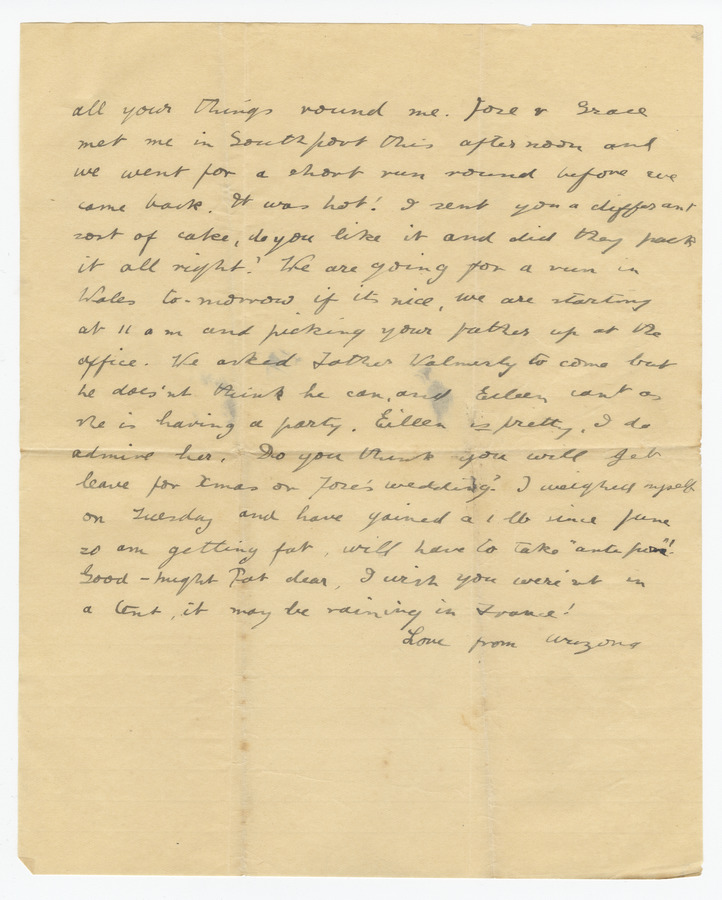 all your things round me. Jose & Grace
met me in Southport this afternoon and
we went for a short run round before we
came back. It was hot! I sent you a different
sort of cake, do you like it and did they pack
it all right? We are going for a run in
Wales to-morrow if its nice, we are starting
at 11 am and picking your father up at the
office. We asked Father to come but
he does'nt think he can, and Eileen cant as
she is having a party. Eileen is pretty, I do
admire her. Do you think you will get
leave for Xmas or Jose's wedding? I weighed myself
on Tuesday and have gained a 1 lb since June
so am getting fat, will have to take "anti "!
Good-night Pat dear, I wish you were'nt in
a tent, it may be raining in France!
Love from